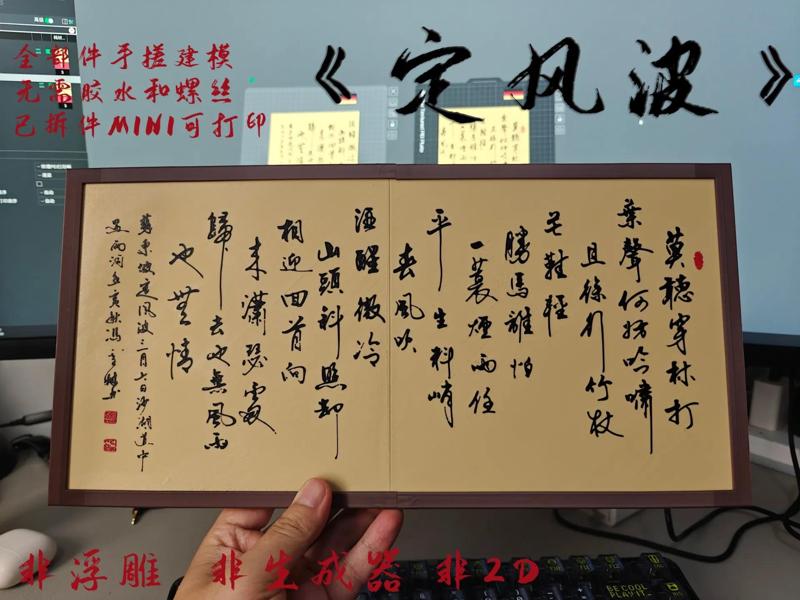 全部件手搓建模
无需胶水和螺丝
已拆件MINI可打印
《定风波》
莫聽穿林打
葉聲何妨吟嘯
且徐行竹杖
芒鞋輕
勝馬誰怕
一蓑煙雨任
平生料峭
春風吹
酒醒微冷
山頭斜照却
相迎回首向
来瀟瑟處
歸去也無風雨
也無情
蘇東坡定風波三月七日沙湖道中
非浮雕 非生成器 非2D
BE COOL